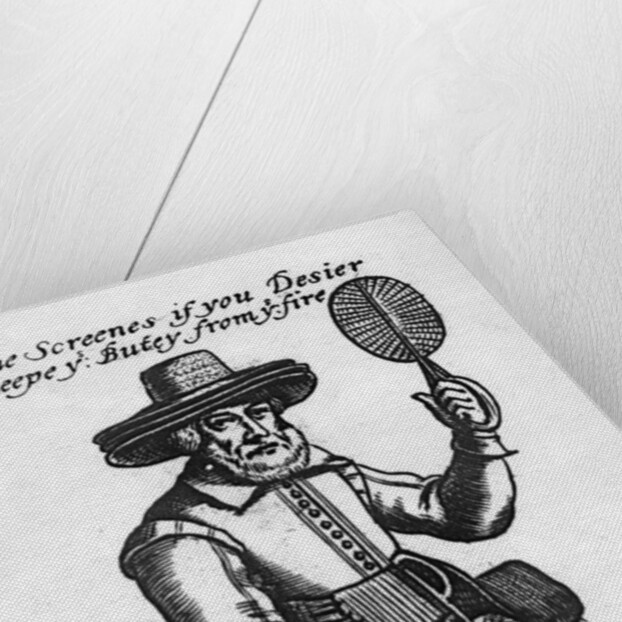 Screenes if you Desier
eepe yͤ: Butey from yͤ fire